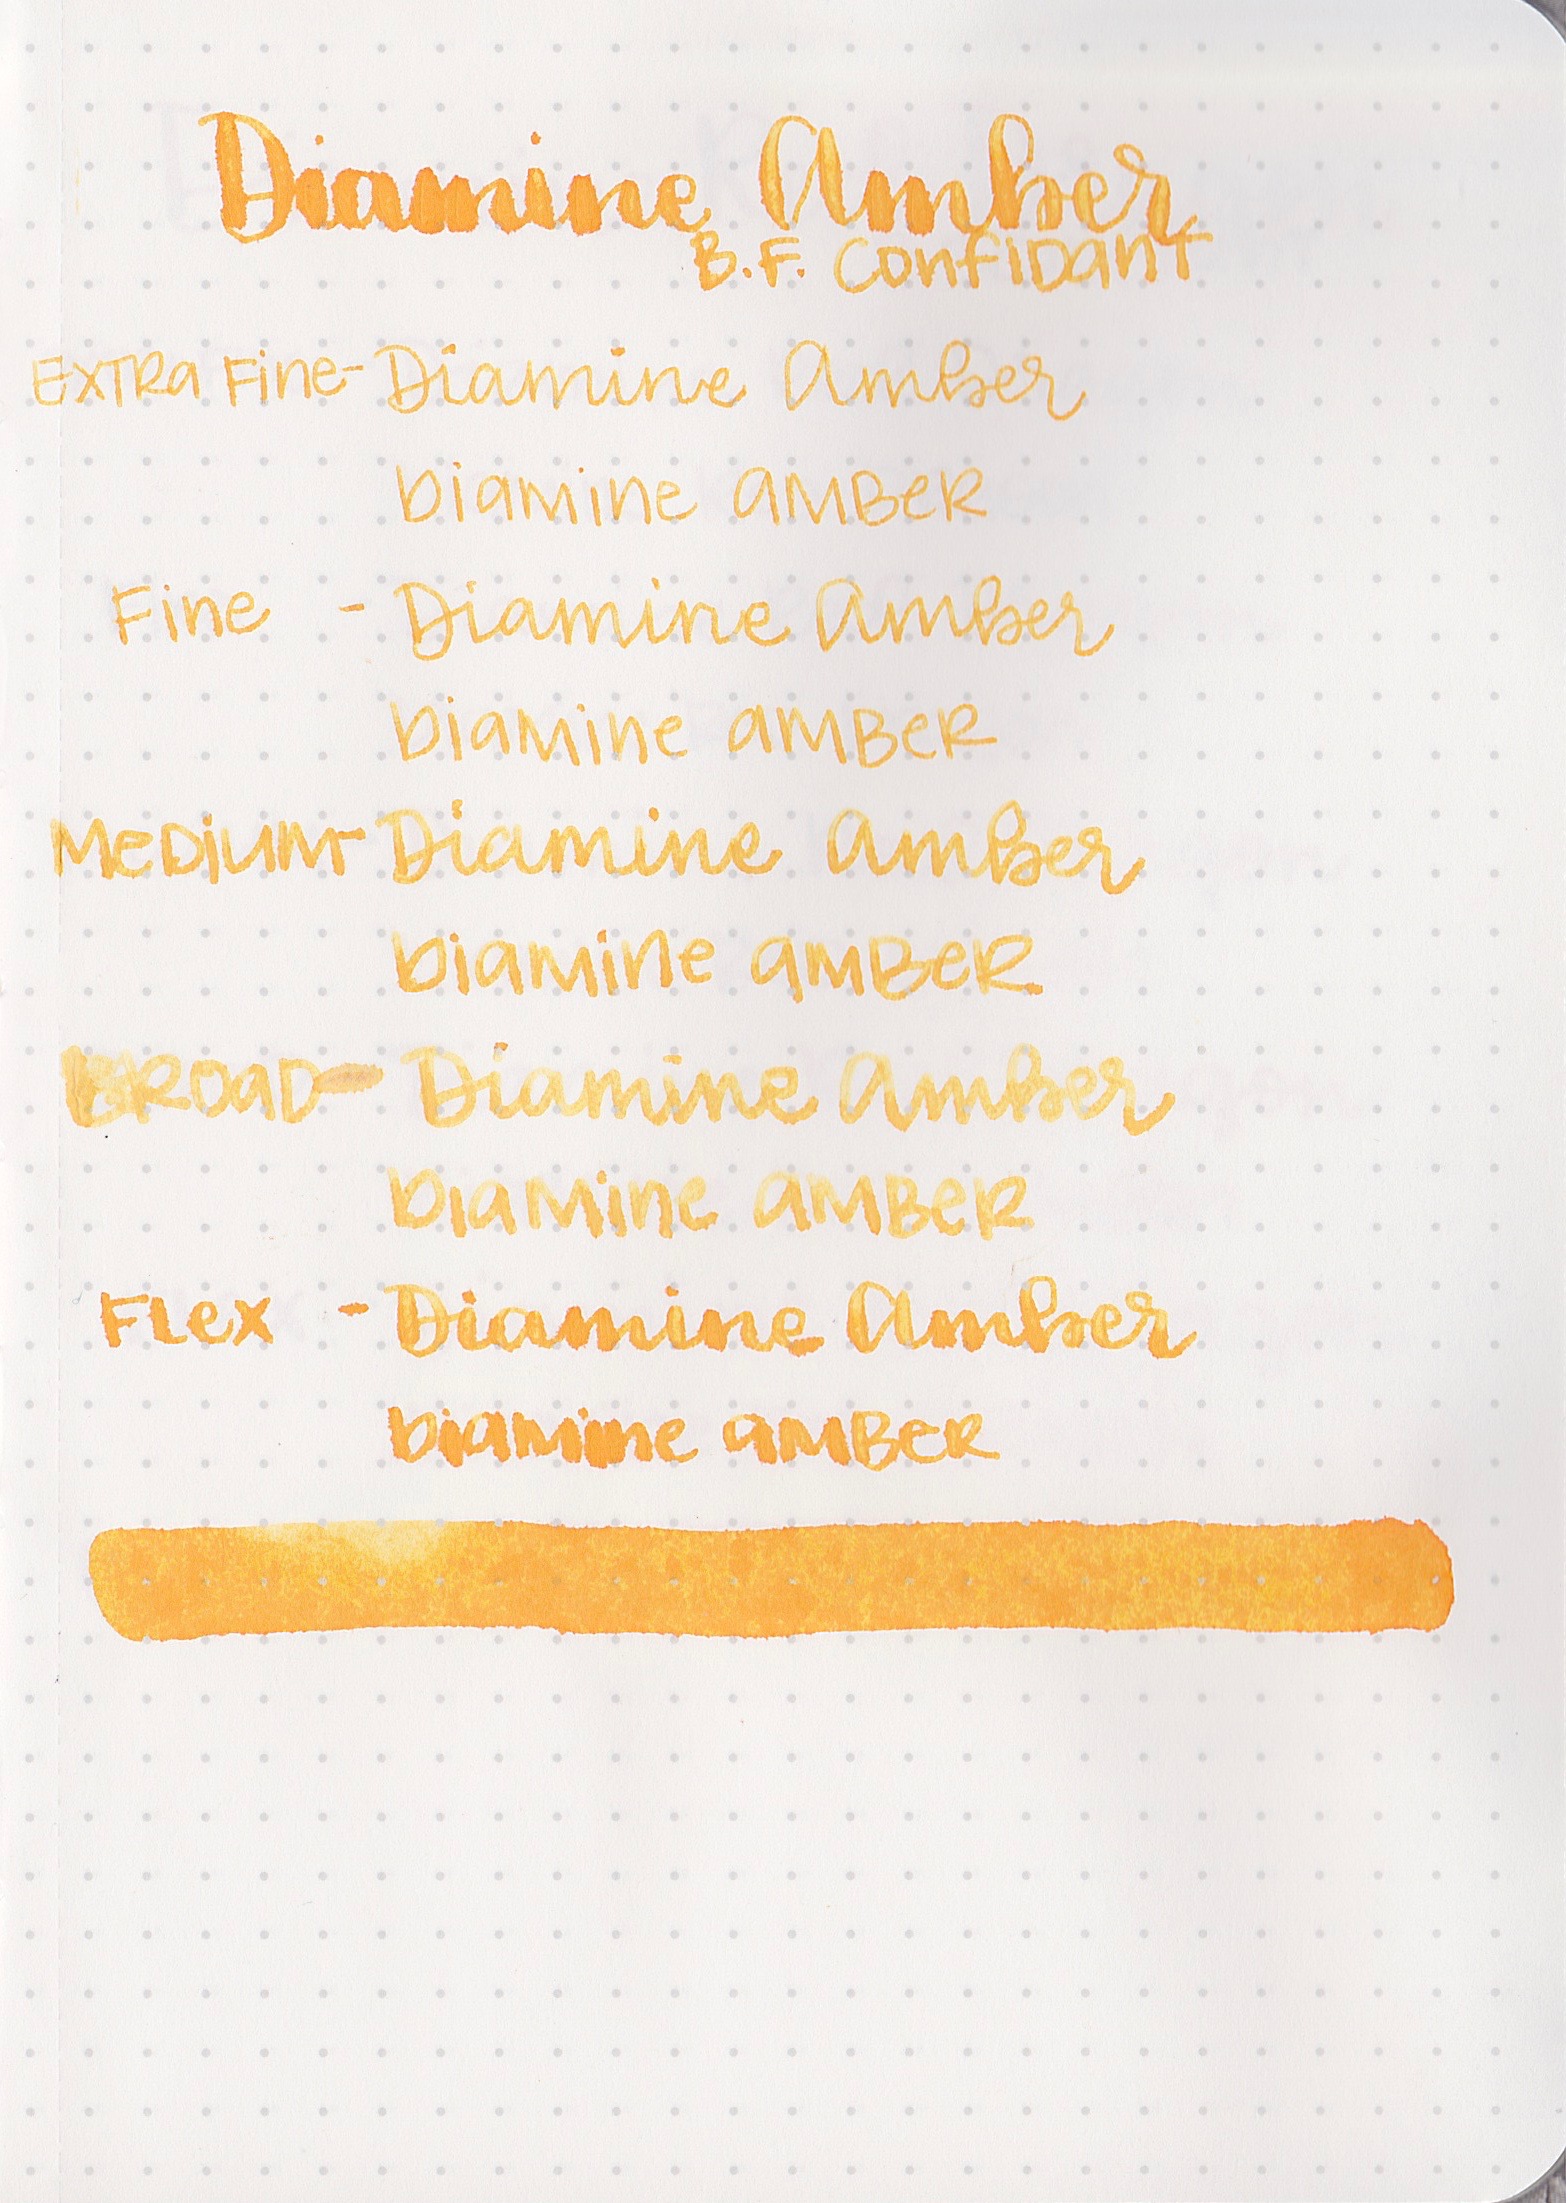 Diamine Amber
B.F. Confidant
Extra Fine - Diamine Amber
Diamine Amber
Fine - Diamine Amber
Diamine Amber
Medium - Diamine Amber
Diamine Amber
Broad - Diamine Amber
Diamine Amber
Flex - Diamine Amber
Diamine Amber